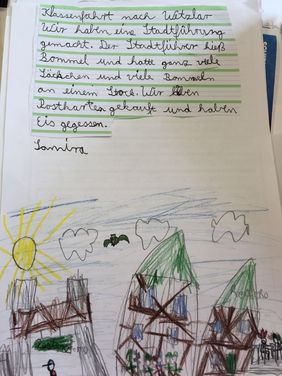 Klassenfahrt nach Wetzlar
Wir haben eine Stadtführung
gemacht. Der Stadtführer hieß
Bommel und hatte ganz viele
Säckchen und viele Bommeln
an einem Stock. Wir
Postkarten gekauft und haben
Eis gegessen.
Samira